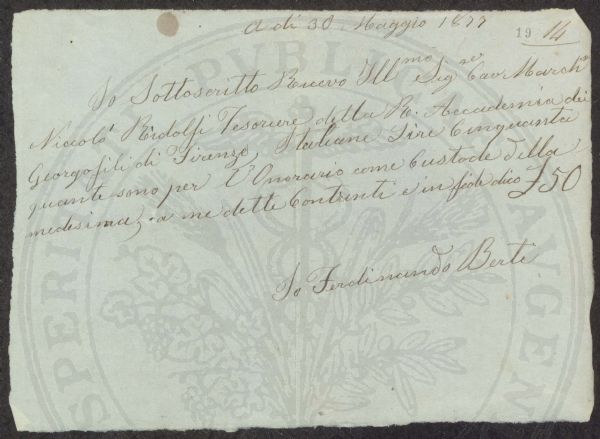 A di 30 Maggio 1877
19 14
Io Sottoscritto Ricevo Ill.mo Sig.re Cav. March.e
Niccolò Ridolfi Tesoriere della R. Accademia dei
Georgofili di Firenze, Italiane Lire Cinquanta
quante sono per l'Onorario come Custode della
medesima, a me dette Contenti e in fede dico £50
Io Ferdinando Berti
PUBLICA
PROSPERITATI AUGEN